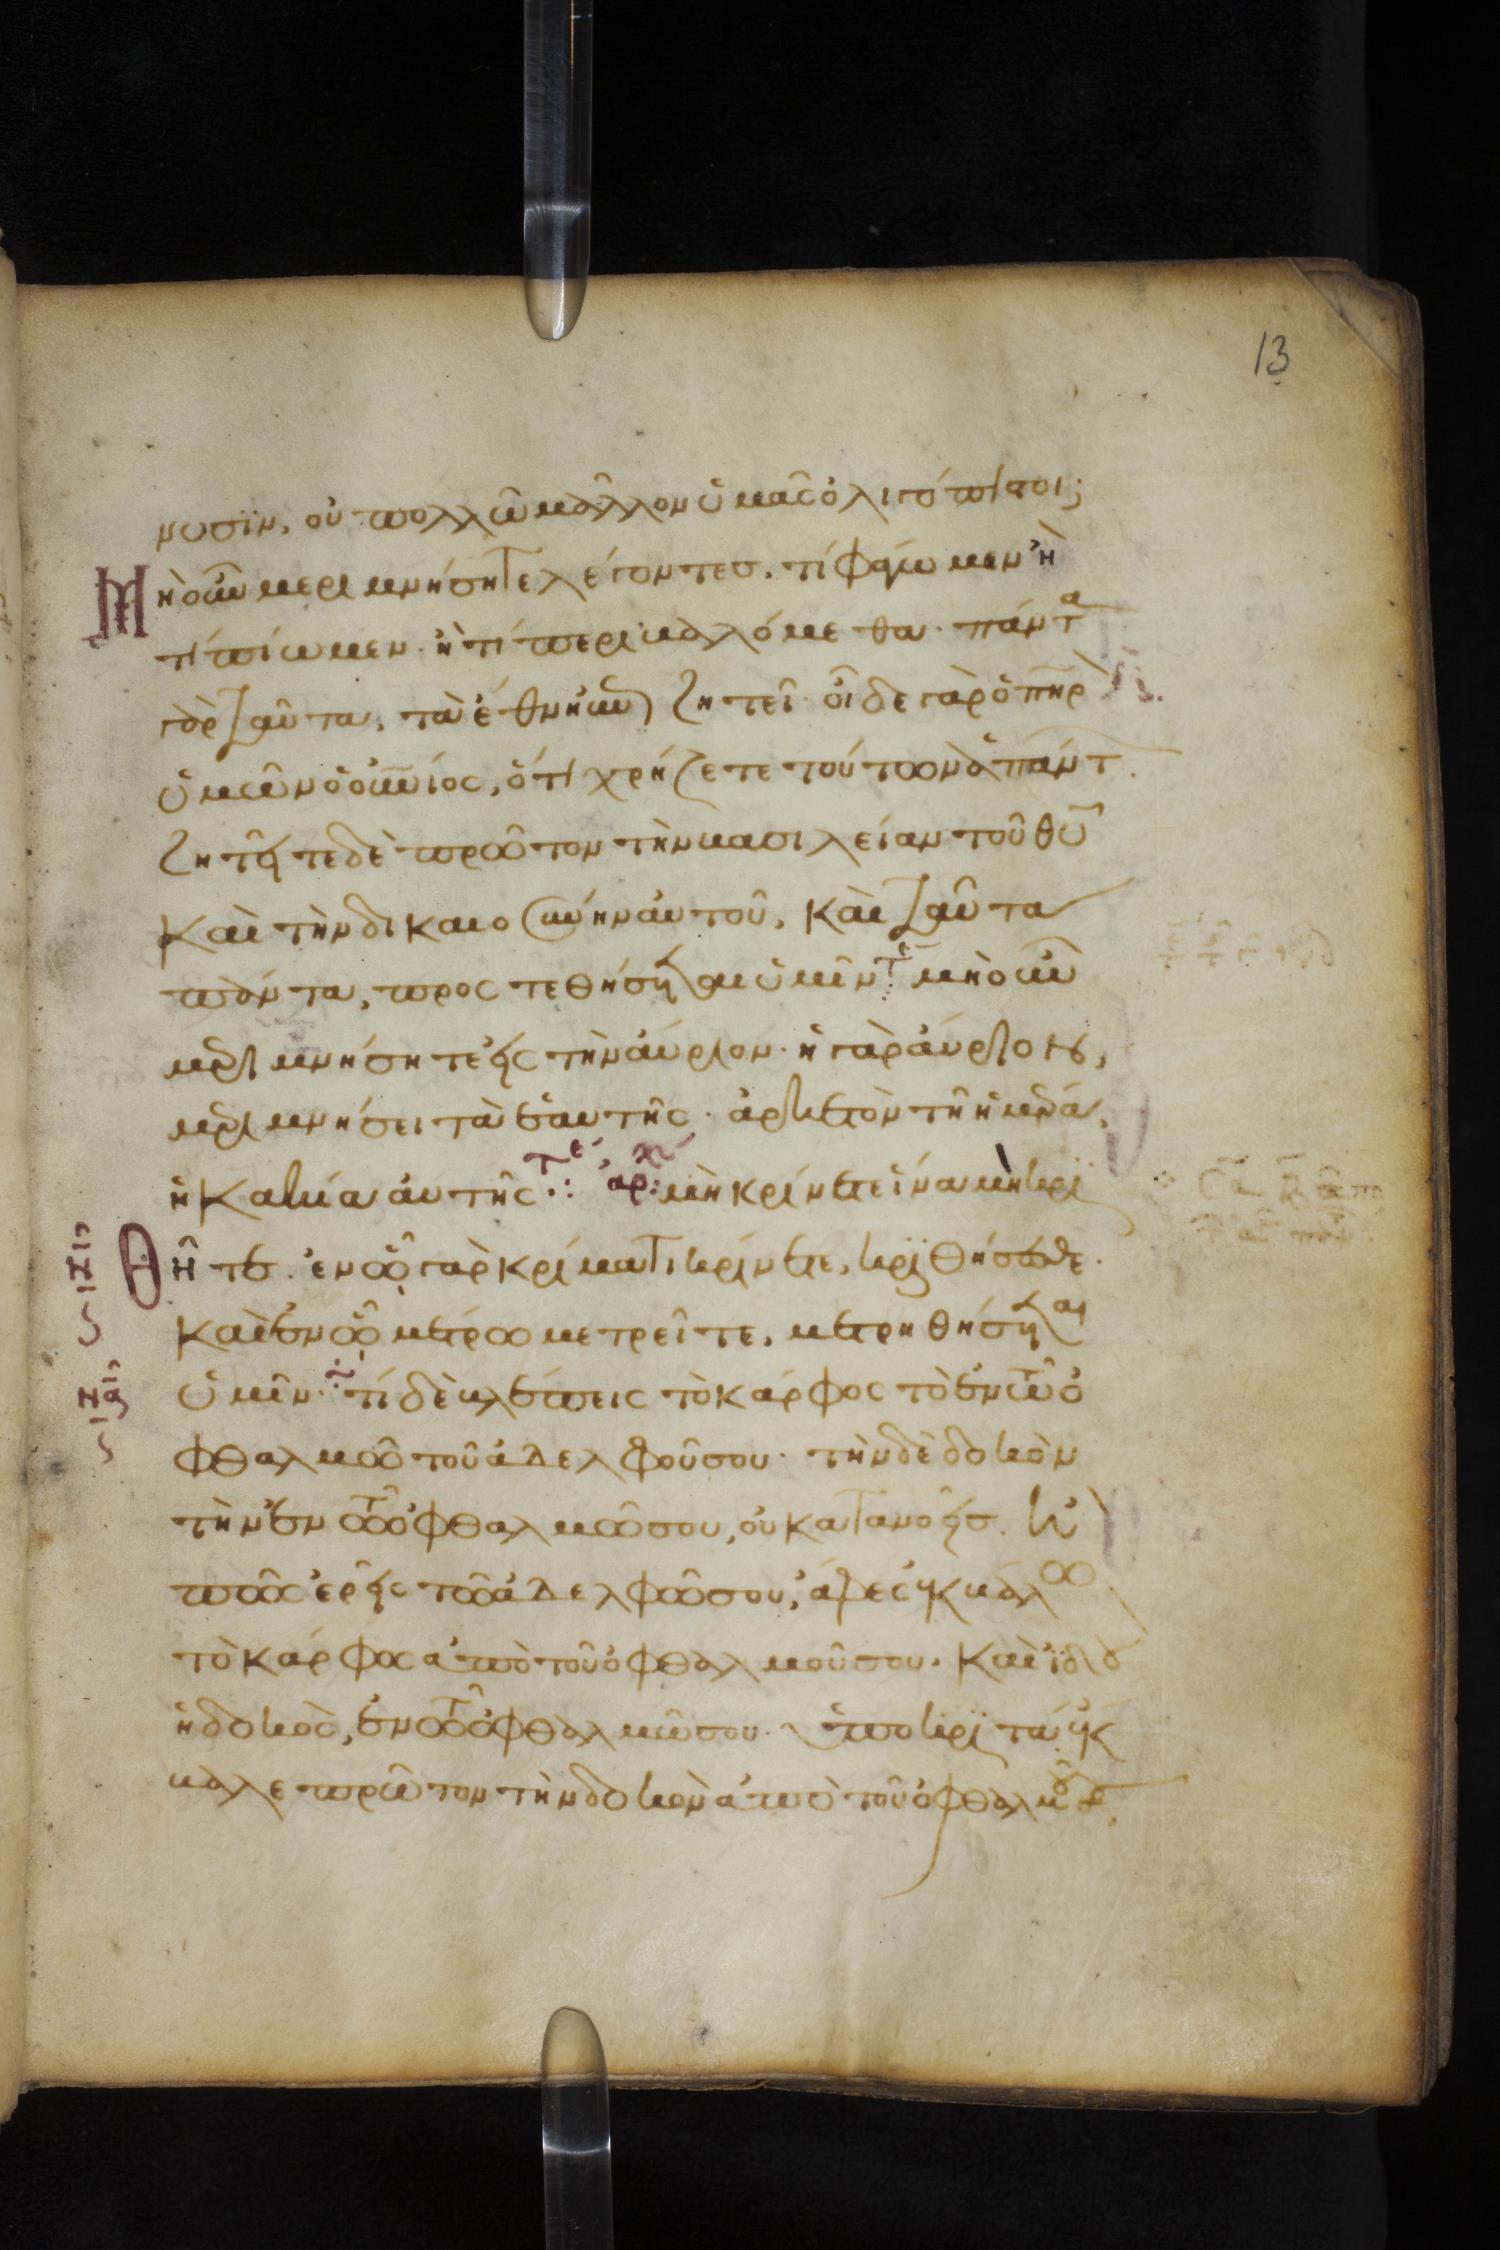 13
μυσϊν, οὐ πολλῶ μᾶλλον ὑμᾶς ὀλιγόπιστοι;
Μὴ οὖν μεριμνήσητε λέγοντες. τί φάγωμεν ἢ
τί πίωμεν. ἢ τί περιβαλόμεθα. πάντα
γὰρ ταῦτα, τὰ ἔθνη ζητεῖ. οἶδε γὰρ ὁ πῆρ
ὑμῶν ὁ οὐνιος, ὅτι χρήζετε τούτων ἁπάντ.
ζητεῖτε δὲ πρῶτον τὴν βασιλείαν τοῦ θῦ
καὶ τὴν δικαιοσύνην αὐτοῦ, καὶ ταῦτα
πάντα, προστεθήσεται ὑμῖν τε μὴ οὖν
μεριμνήσητε εἰς τὴν αὔριον. ἡ γὰρ αὔριον,
μεριμνήσει τὰ ἑαυτῆς. ἀρκετὸν τῆ ἡμέρα,
ἡ κακία αὐτῆς .: τε αρχ: μὴ κρίνετε ἵνα μὴ κρι
θῆτε. ἐν ὧ γὰρ κρίματι κρίνετε, κριθήσεσθε.
καὶ ἐν ὧ μέτρω μετρεῖτε, μετρηθήσεται
ὑμῖν. τί δὲ βλέπεις τὸ κάρφος τὸ ἐν τῶ ὀ
φθαλμῶ τοῦ ἀδελφοῦ σου. τὴν δὲ δοκὸν
τὴν ἐν τῶ ὀφθαλμῶ σου, οὐ κατανοεῖσ. ἢ
πῶς ἐρεῖς τῶ ἀδελφῶ σου, ἄφες ἐκβάλω
τὸ κάρφος ἀπὸ τοῦ ὀφθαλμοῦ σου. καὶ ἰδοὺ
ἡ δοκὸς, ἐν τῶ ὀφθαλμῶ σου. ὑποκριτά ἔκ
βαλε πρῶτον τὴν δοκὸν ἀπὸ τοῦ ὀφθαλμοῦ σου